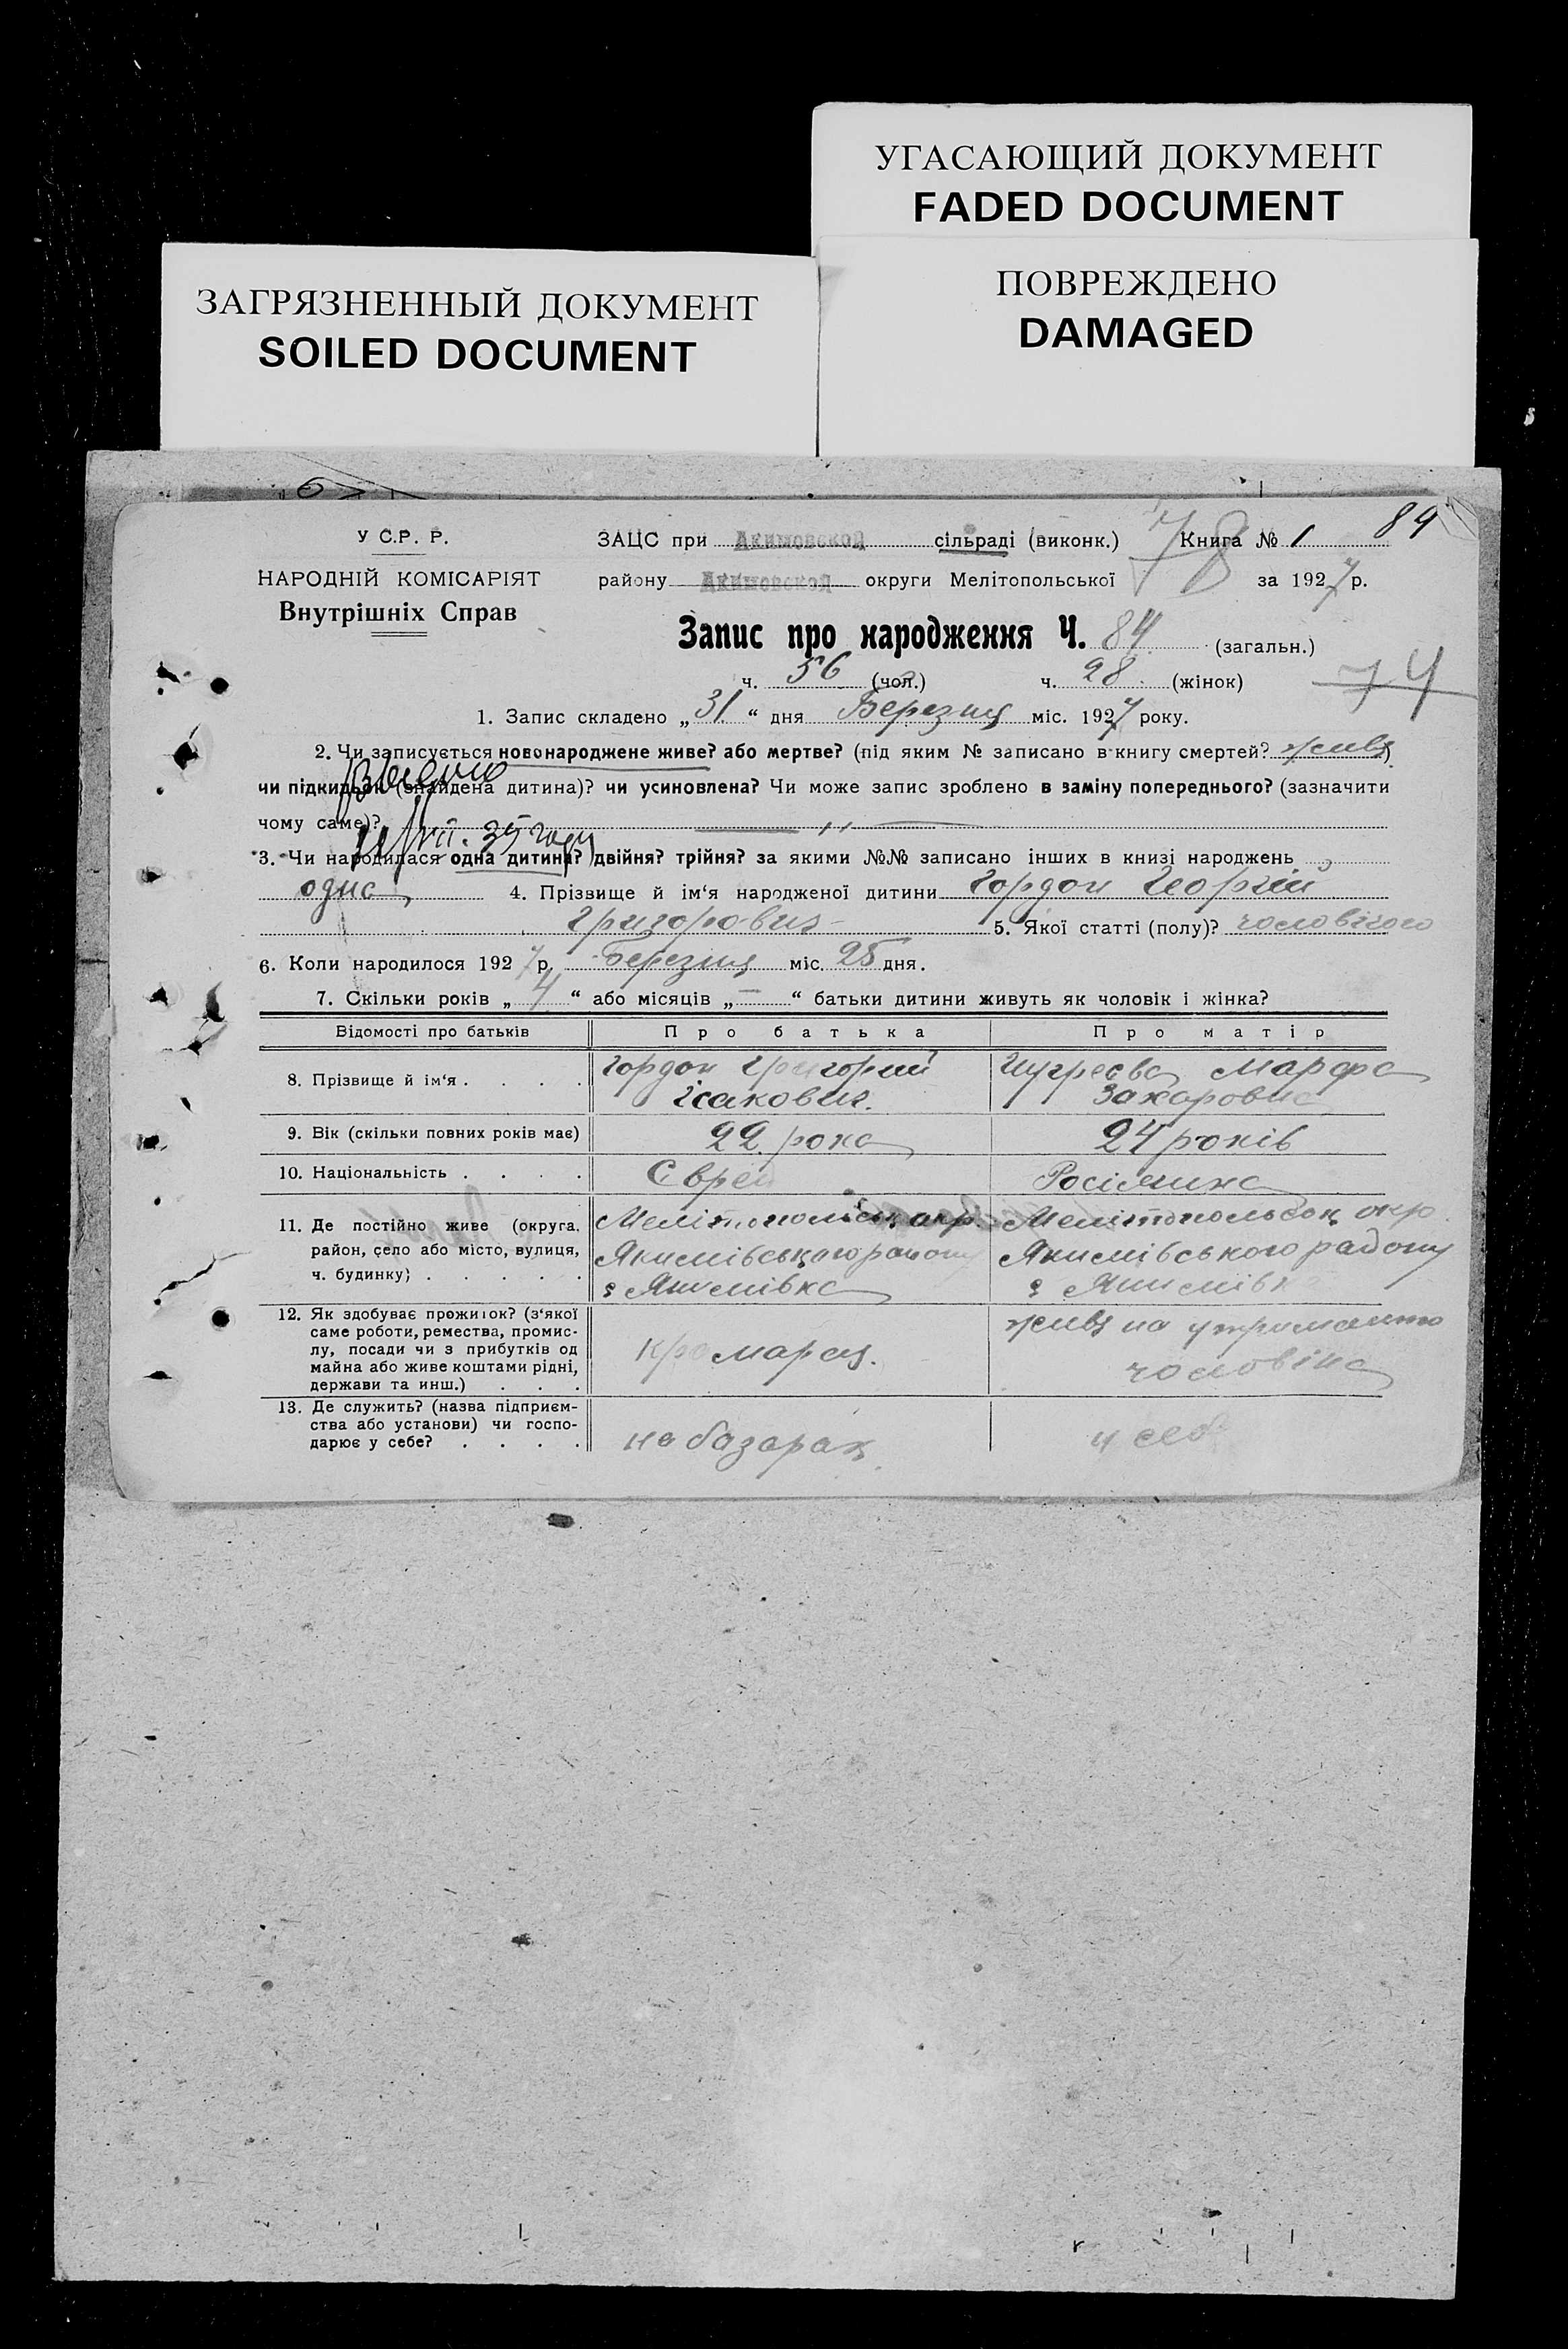 УГАСАЮЩИЙ ДОКУМЕНТ
FADED DOCUMENT
ЗАГРЯЗНЕННЫЙ ДОКУМЕНТ
SOILED DOCUMENT
ПОВРЕЖДЕНО
DAMAGED
У С.Р. Р.
НАРОДНІЙ КОМІСАРІЯТ
Внутрішніх Справ
ЗАЦС при Акимовской сільраді (виконк.) Книга № 1 84
78
району Акимовской округи Мелітопольської за 1927 р.
Запис про народження Ч. 84 (загальн.)
ч. 56 (чол.) ч. 28 (жінок)
74
1. Запис складено „31“ дня Березня міс. 1927 року.
2. Чи записується новонароджене живе? або мертве? (під яким № записано в книгу смертей? живе)
чи підкидьок (знайдена дитина)? чи усиновлена? Чи може запис зроблено в заміну попереднього? (зазначити
чому саме)? — „ —
35 году
3. Чи народилася одна дитина? двійня? трійня? за якими №№ записано інших в книзі народжень
одна 4. Прізвище й ім‘я народженої дитини Гордон Георгій
Григорович 5. Якої статті (полу)? чоловічого
6. Коли народилося 1927 р. Березня міс. 25 дня.
7. Скільки років „4“ або місяців „—“ батьки дитини живуть як чоловік і жінка?
Відомості про батьків Про батька Про матір
8. Прізвище й ім‘я . . . . Гордон Григорий Ісакович. Марфа
9. Вік (скільки повних років має) 22 рока 24 років
10. Національність . . . . Єврей Росіянка
11. Де постійно живе (округа, район, село або місто, вулиця, ч. будинку) . . . . . Мелітопольськ окр. Якимівського району с Якимівка Мелітопольськ окр. Якимівського району с Якимівка
12. Як здобуває прожиток? (з‘якої саме роботи, ремества, промислу, посади чи з прибутків од майна або живе коштами рідні, держави та инш.) . . . Крамарь. живе на утриманню чоловіка
13. Де служить? (назва підприємства або установи) чи господарює у себе? . . . . на базарах у себе